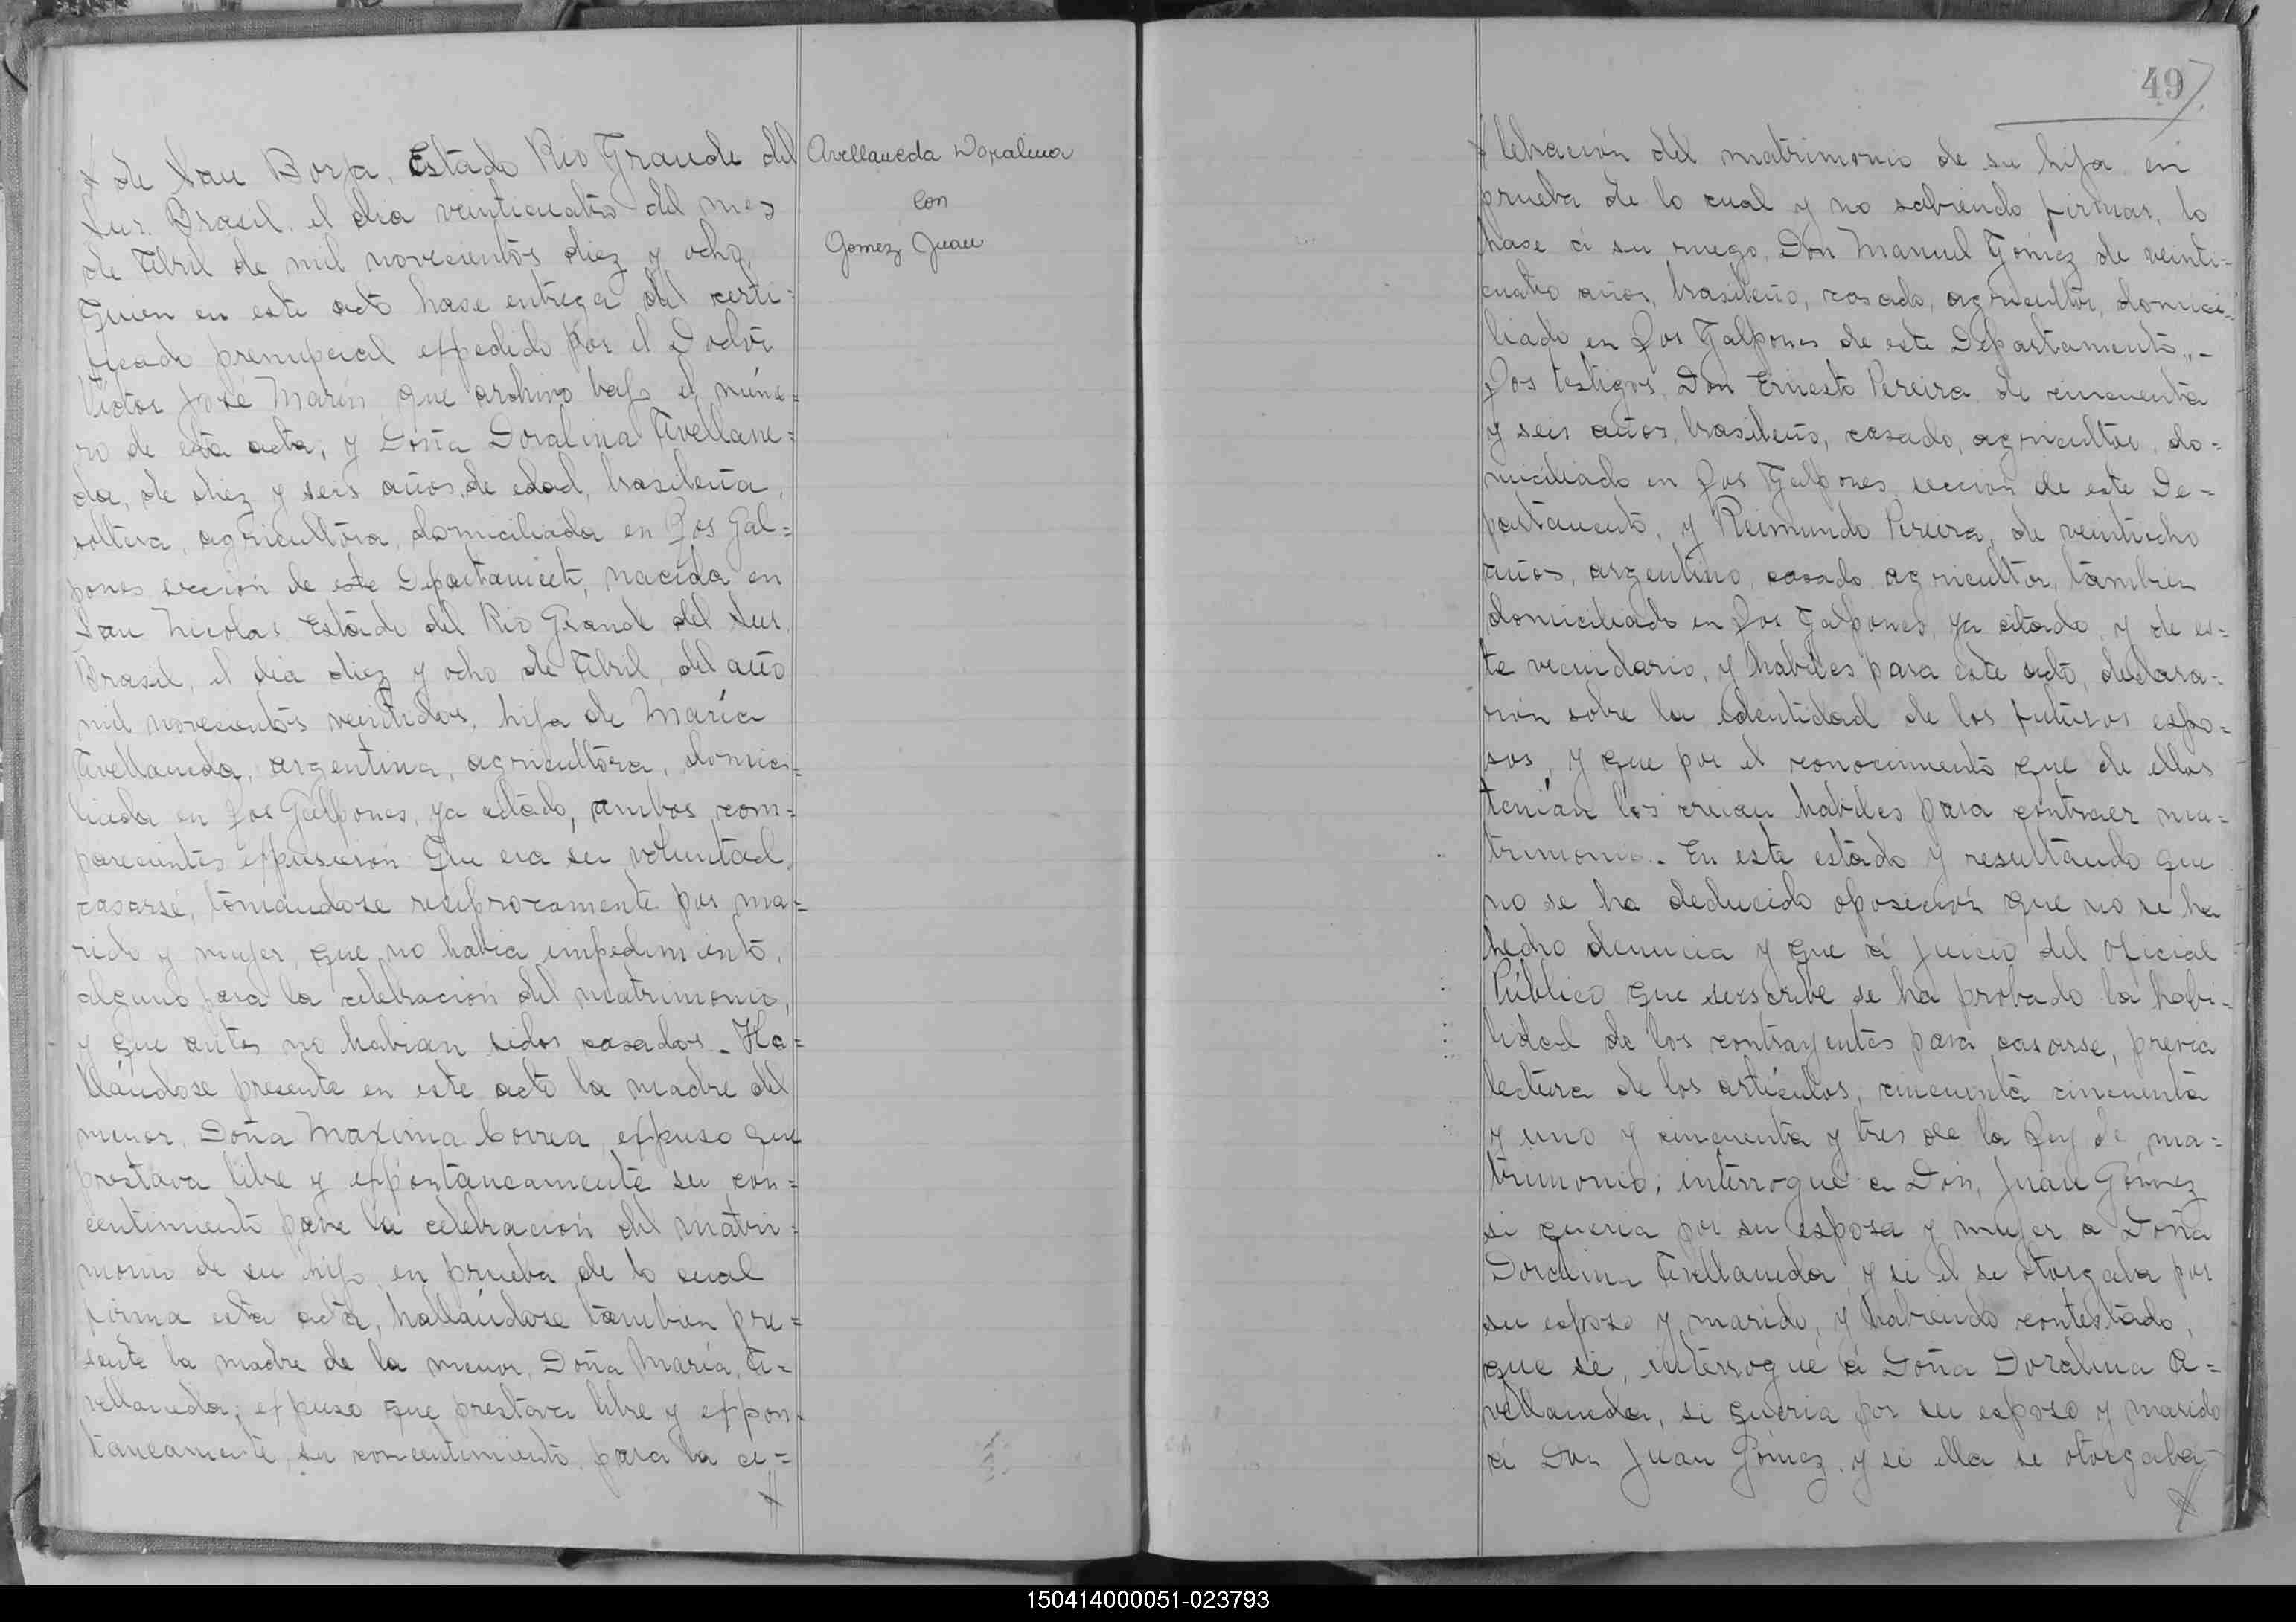 de San Borja, Estado Rio Grande del
Sur. Brasil. el dia veinticuatro del mes
de Abril de mil novecientos diez y ocho,
Quien en este acto hase entrega del certi=
ficado prenupcial expedido por el Doctor
Victor José Marín, que archivo bajo el núme=
ro de esta acta, y Doña Doralina Avellane=
da, de diez y seis años, de edad, brasileña,
soltera, agricultora, domiciliada en Los Gal=
pones sección de este Departamento, nacida en
San Nicolas Estado del Rio Grande del Sur.
Brasil, el día diez y ocho de Abril, del año
mil novecientos veintidos, hija de María
Avellaneda, argentina, agricultora, domici=
liada en Los Galpones, ya citado, ambos com=
parecientes expusieron: Que era su voluntad,
casarse, tomandose reciprocamente por ma=
rido y mujer, que no habia impedimento,
alguno para la celebracion del matrimonio,
y que antes no habian sidos casados. Ha=
llándose presente en este acto la madre del
menor, Doña Maxima Correa, expuso que
prestava libre y expontaneamente su con=
centimiento para la celebracion del matri=
monio de su hijo, en prueba de lo cual
firma esta acta, hallándose tambien pre=
sente la madre de la menor, Doña María, A=
vellaneda; expuso que prestava libre y expon=
taneamente, su concentimiento, para la ce=
Avellaneda Doralina
con
Gomez Juan
49
lebración del matrimonio de su hija en
prueba de lo cual y no sabiendo firmar, lo
hase á su ruego, Don Manuel Gómez de veinti=
cuatro años, brasileño, casado, agricultor, domici=
liado en Los Galpones de este Departamento.-
Los testigos, Don Ernesto Pereira, de cincuenta
y seis años, brasileño, casado, agricultor, do=
miciliado en Los Galpones, sección de este De=
partamento, y Reimundo Pereira, de veintiocho
años, argentino, casado, agricultor, tambien
domiciliado en Los Galpones, ya citado, y de es=
te vecindario, y habiles para este acto, declara=
ron sobre la identidad de los futuros espo=
sos, y que por el conocimiento que de ellos
tenían los creian habiles para contraer ma=
trimonio. En este estado y resultando que
no se ha deducido oposición que no se ha
hecho denuncia y que á juicio del Oficial
Público que suscribe se ha probado la habi=
lidad de los contrayentes para casarse, previa
lectura de los artículos, cincuenta cincuenta
y uno y cincuenta y tres de la Ley de ma=
trimonio; interrogué a Don, Juan Gómez
si queria por su esposa y mujer a Doña
Doralina Avellaneda, y si el se otorgaba por
su esposo y marido, y habiendo contestado,
que sí, interrogué á Doña Doralina A=
vellaneda, si queria por su esposo y marido
á Don Juan Gómez, y si ella se otorgaba
150414000051-023793